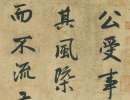 公受事
其風隳
而不流